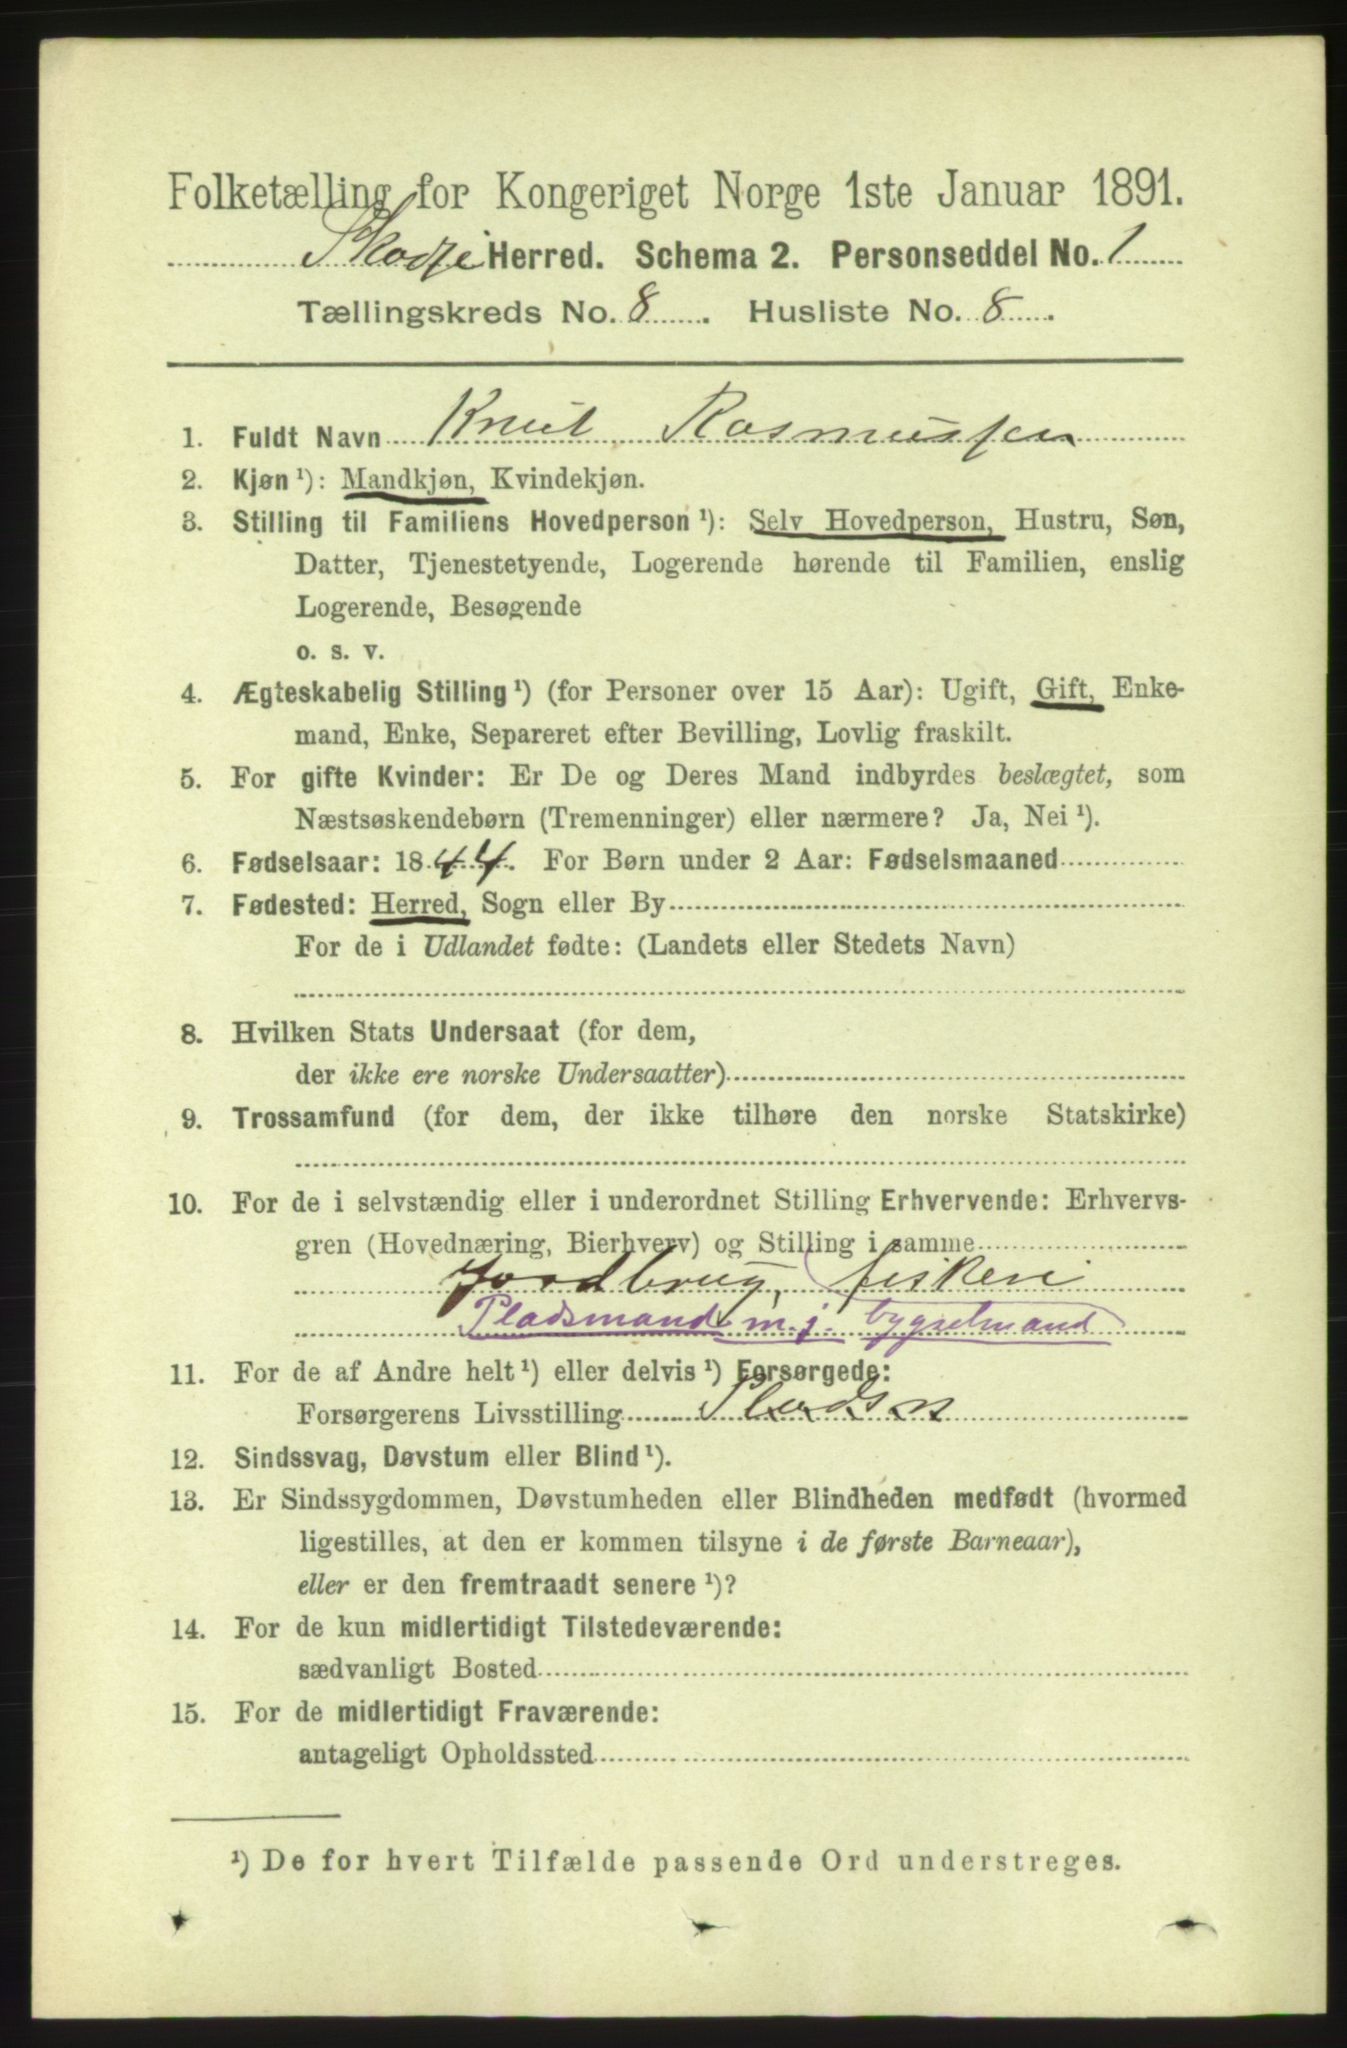 Folketælling for Kongeriget Norge 1ste Januar 1891.
Skodje Herred. Schema 2. Personseddel No. 1
Tællingskreds No. 8. Husliste No. 8.
1. Fuldt Navn Knut Rasmussen
2. Kjøn ¹): Mandkjøn, Kvindekjøn.
3. Stilling til Familiens Hovedperson ¹): Selv Hovedperson, Hustru, Søn,
Datter, Tjenestetyende, Logerende hørende til Familien, enslig
Logerende, Besøgende
o. s. v.
4. Ægteskabelig Stilling ¹) (for Personer over 15 Aar): Ugift, Gift, Enke-
mand, Enke, Separeret efter Bevilling, Lovlig fraskilt.
5. For gifte Kvinder: Er De og Deres Mand indbyrdes beslægtet, som
Næstsøskendebørn (Tremenninger) eller nærmere? Ja, Nei ¹).
6. Fødselsaar: 1844. For Børn under 2 Aar: Fødselsmaaned
7. Fødested: Herred, Sogn eller By
For de i Udlandet fødte: (Landets eller Stedets Navn)
8. Hvilken Stats Undersaat (for dem,
der ikke ere norske Undersaatter)
9. Trossamfund (for dem, der ikke tilhøre den norske Statskirke)
10. For de i selvstændig eller i underordnet Stilling Erhvervende: Erhvervs-
gren (Hovednæring, Bierhverv) og Stilling i samme
Jordbrug, fiskeri
Pladsmand m. j. bygselmand
11. For de af Andre helt ¹) eller delvis ¹) Forsørgede:
Forsørgerens Livsstilling
12. Sindssvag, Døvstum eller Blind ¹).
13. Er Sindssygdommen, Døvstumheden eller Blindheden medfødt (hvormed
ligestilles, at den er kommen tilsyne i de første Barneaar),
eller er den fremtraadt senere ¹)?
14. For de kun midlertidigt Tilstedeværende:
sædvanligt Bosted
15. For de midlertidigt Fraværende:
antageligt Opholdssted
¹) De for hvert Tilfælde passende Ord understreges.